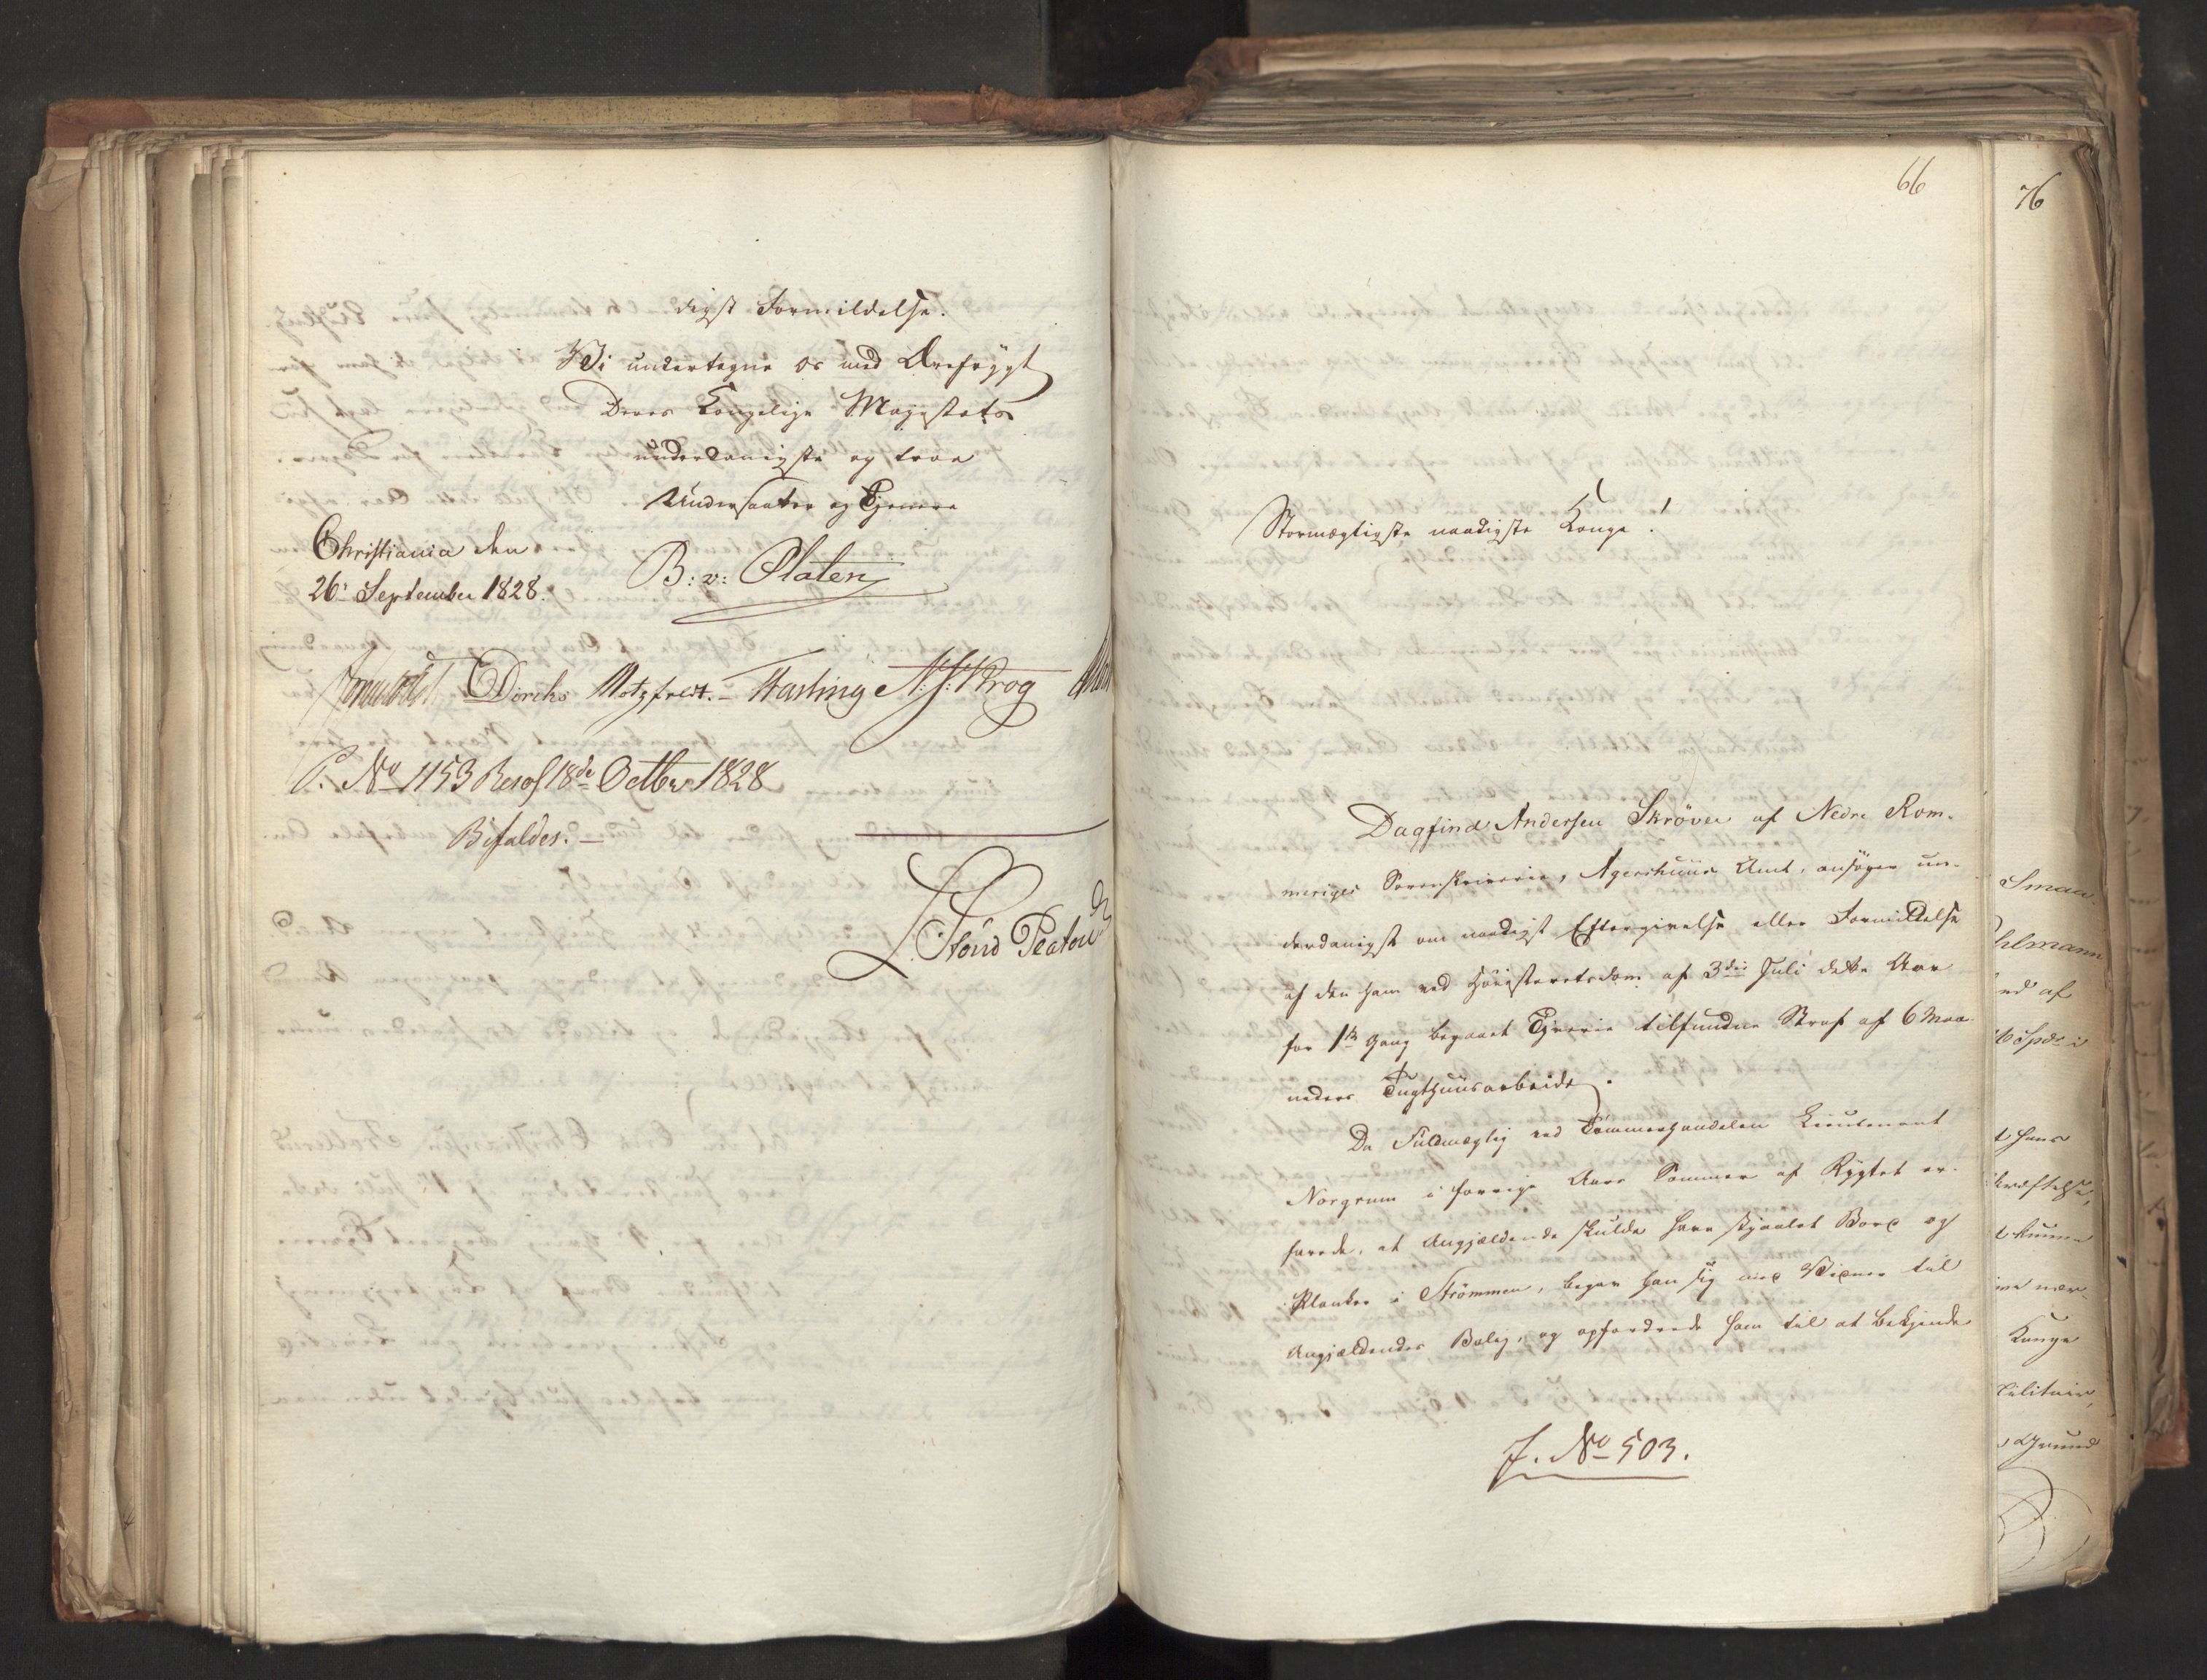 digst Formildelse.
Vi undertegne os med Ærefrygt
Deres Kongelige Majestæts
underdanigste og troe
Undersaatter og Tjenere
Christiania den
26de September 1828.
B: v: Platen
Diriks Motzfeldt. Fasting N. J. Krog
P. No 1153 Resol 18de Octbr 1828
Bifaldes.
66
Stormægtigste naadigste Konge!
Dagfind Andersen Skröver af Nedre Rom-
meriges Sorenskriverie, Agershuus Amt, ansøger un-
derdanigst om naadigst Eftergivelse eller Formildelse
af den ham ved Høiesteretsdom af 3die Juli dette Aar
for 1ste Gang begaaet Tyverie tilfundne Straf af 6 Maa-
neders Tugthuusarbeide.
Da Fuldmægtig ved Tømmerhandelen Lieutenant
Norgrum i forrige Aars Sommer af Rygtet er-
farede, at Angjældende skulde have stjaalet Bord og
Planker i Strömmen, begav han sig med Vidner til
Angjældendes Bolig, og opfordrede ham til at bekjende
J. No 503.
76
Smaa
hlmann
nd af
16 Spd i
t hans
kræftelse,
t kunne
Konge
Militair,
Grund